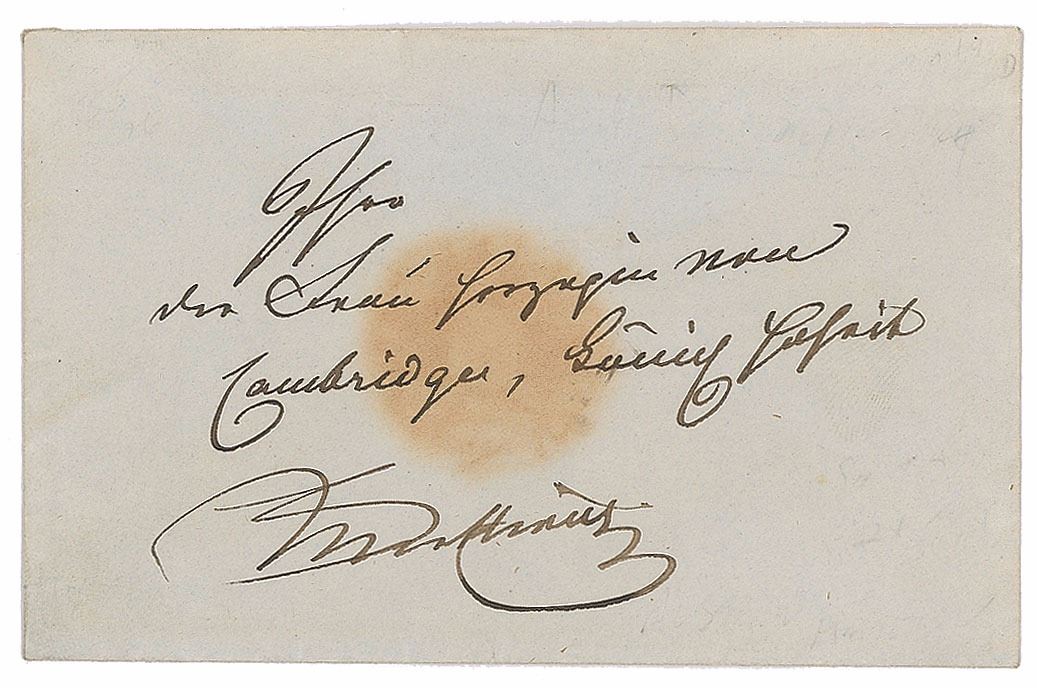 Ihro
der Frau Herzogin von
Cambridge, Königl Hoheit